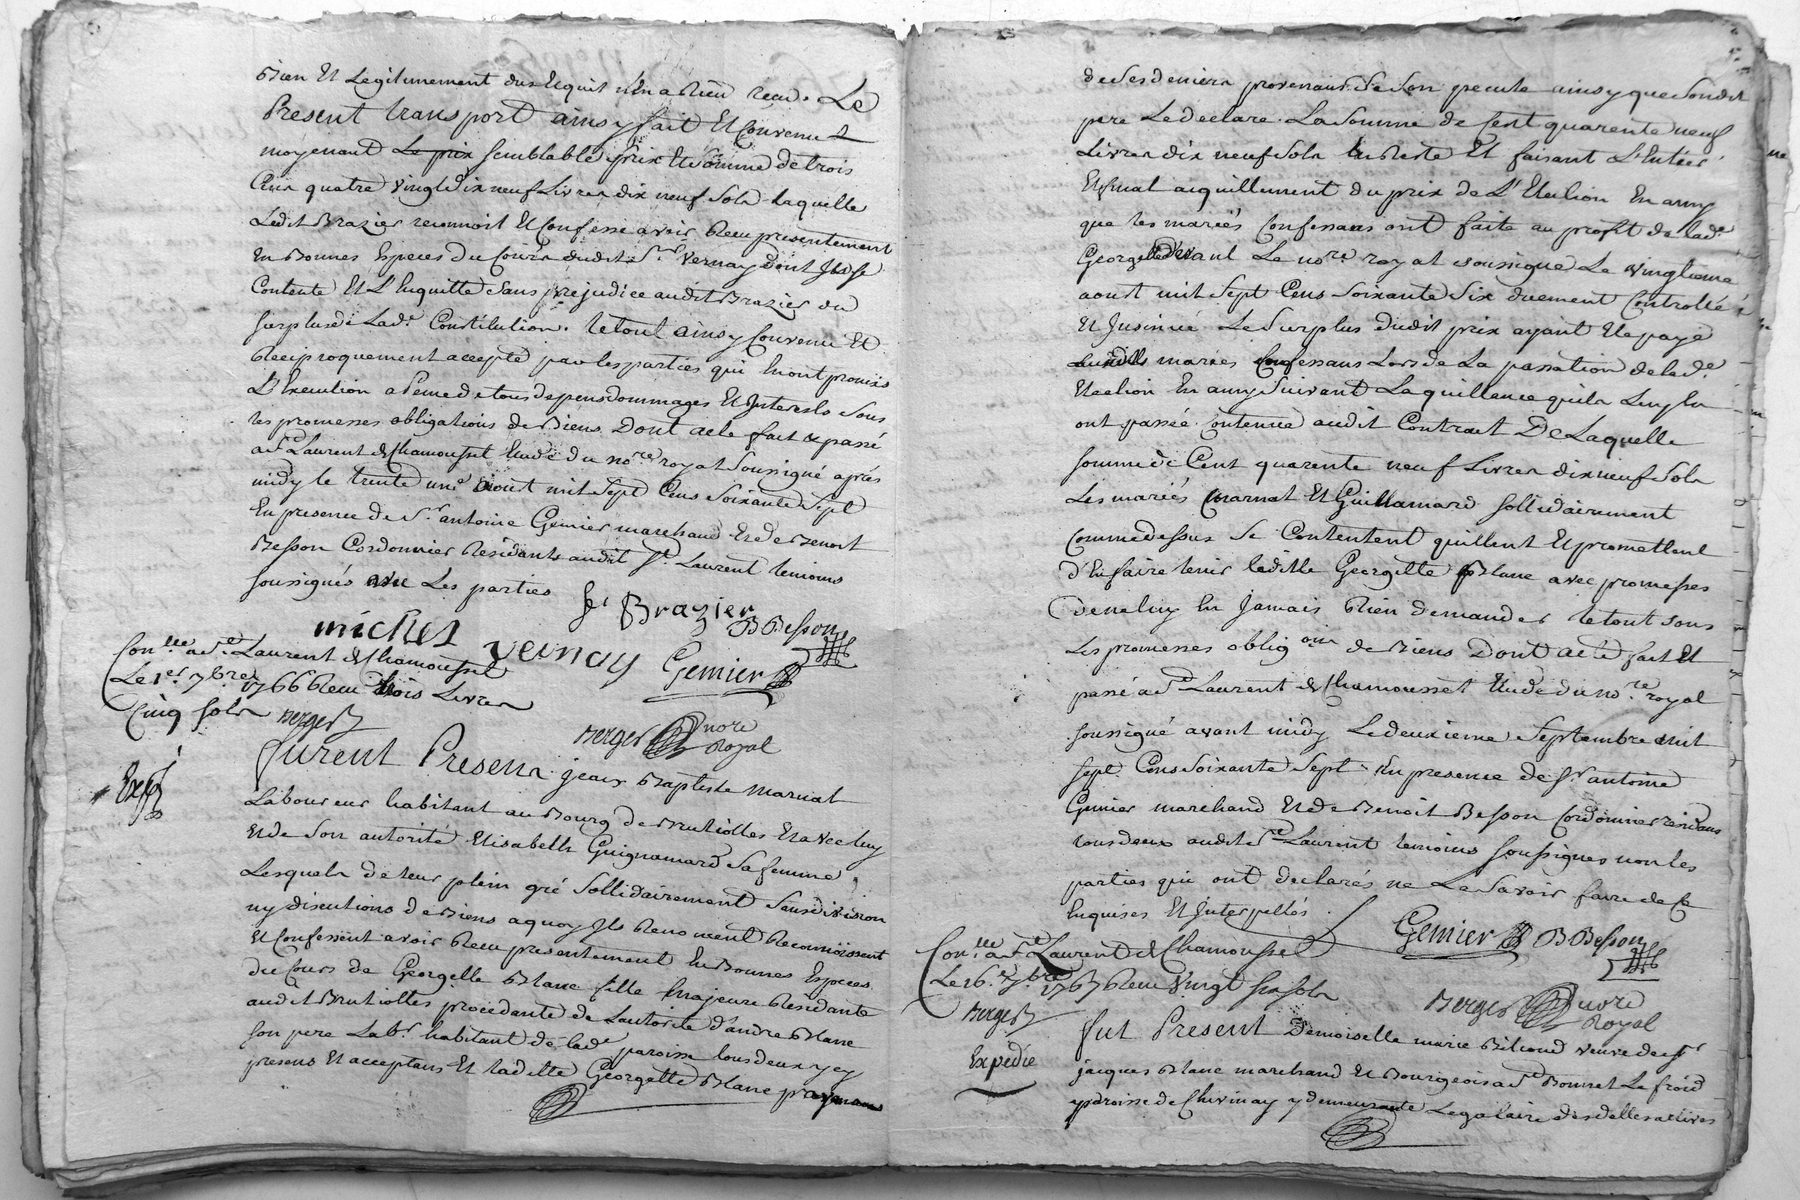 Bien Et Legitimement dus Et quil n'En a Rien Recu. Le
Present transport ainsy fait Et Convenu
moyenant Le prix semblable prix Et somme de trois
Cens quatre vingt dix neuf Livres dix neuf Sols Laquelle
Ledit Brazier reconnoit Et Confesse avoir Recu presentement
En Bonnes Especes du Cours dudit Sr. Vernay Dont Il Se
Contente Et L'Enquitte Sans prejudice audit Brazier du
surplus de Lade. Constitution. Le tout ainsy Convenu Et
Reciproquement accepté par les parties qui En ont promis
L'Execution a Peine de tous depens dommages Et Interests Sous
les promesses obligations de Biens. Dont acte fait & passé
a St Laurent de Chamousset Etude du nore. royal Soussigné après
midy le trente une aoust mil Sept Cens Soixante Sept
En presence de Sr. antoine Gemier marchand Et de Benoit
Besson Cordonnier Résidants audit St. Laurent temoins
soussignés avec Les parties
Brazier
B Besson
michel vernay
Gemier
Conlle a St. Laurent de Chamousset
Le 1er 7bre 1766 Recu trois Livres
Cinq sols Berger
Berger nore Royal
Exp
furent Presens jean Baptiste marnat
Laboureur habitant au Bourg de Brutiolles Et avec luy
Et de Son autorité Elisabeth Guignamard Sa femme,
Lesquels de leur plein gré Sollidairement Sans division
ny discutions de Biens a quoy Ils Renoncent Reconnoissent
Et Confessent avoir Recu presentement En Bonnes Especes
du Cours de Georgette Blanc fille Majeure Résidante
audit Brutiolles procedante de Lautorité d'andré Blanc
son pere Labr. habitant de lade. paroisse tous deux icy
presens Et acceptans Et Ladite Georgette Blanc payemen
de Ses deniers provenans de Son pecule ainsy que Son dit
pere Le declare. La Somme de Cent quarente neuf
Livres dix neuf Sols En Reste Et faisant L'Entier
Et final acquittement du prix de L'Election En amy
que les mariés Confessans ont faite au profit de lade.
Georgette devant Le nore. royal soussigné Le vingtieme
aoust mil Sept Cens Soixante Six duement Controllé
Et Insinué Le Surplus dudit prix ayant Eté payé
auxdits mariés Confessans Lors de La passation de lade.
Election En amy Suivant La quittance quils Luy En
ont passée Contenue audit Contract De Laquelle
somme de Cent quarente neuf Livres dix neuf Sols
Les mariés Marnat Et Guillamard sollidairement
Comme dessus Se Contentent quittent Et promettent
d'En faire tenir ladite Georgette Blanc avec promesses
de ne luy En Jamais Rien demander le tout sous
Les promesses obligons de Biens Dont acte fait Et
passé a St Laurent de Chamousset Etude du nore. royal
soussigné avant midy Le deuxieme Septembre mil
sept Cens Soixante Sept. En presence de Sr. antoine
Gemier marchand Et de Benoit Besson Cordonnier residans
tous deux audit St. Laurent temoins soussignés non les
parties qui ont declarés ne Le Savoir faire de ce
Enquises Et Interpellés.
Gemier B Besson
Conlle a St. Laurent de Chamousset
Le 16e 7bre 1767 Recu Vingt six sols
Berger
Berger nore Royal
Expédié
fut Present Demoiselle marie Billioud veuve de Sr
jacques Blanc marchand Et Bourgeois a St Bonnet Le froid
paroisse de Chivinay y demeurante Legataire des dettes actives